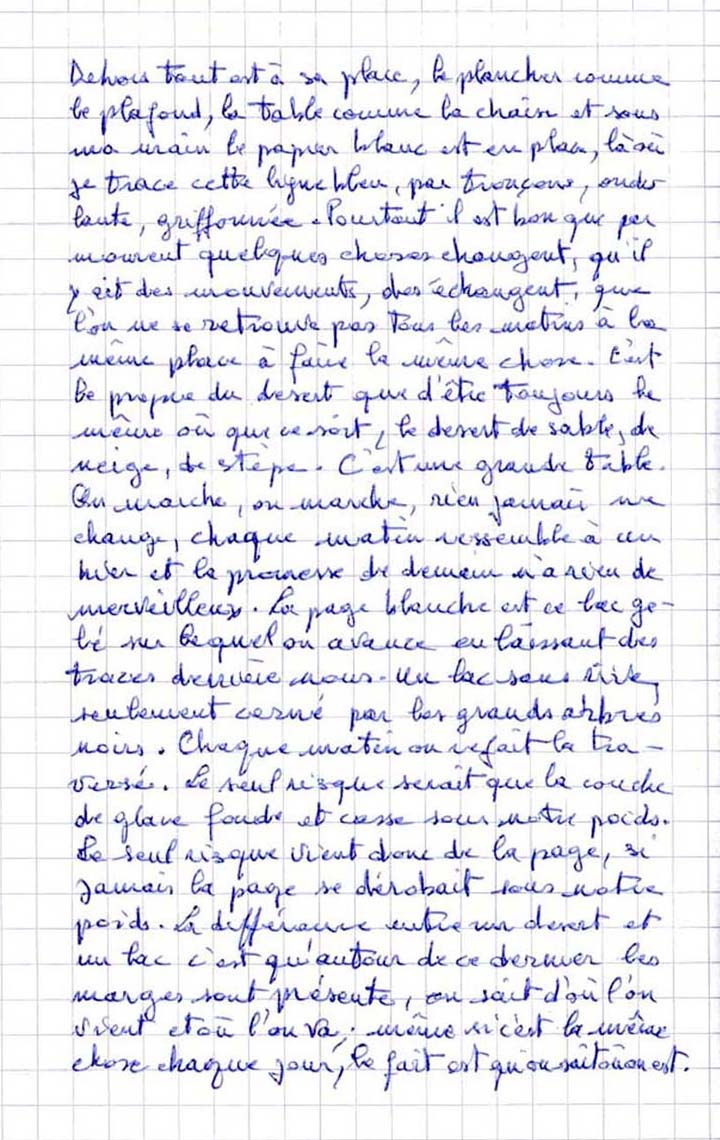 Dehors tout est à sa place, le plancher comme
le plafond, la table comme la chaise et sous
ma main le papier blanc est en place, là où
je trace cette ligne bleu, par tronçons, ondu
lante, griffonnée. Pourtant il est bon que par
moment quelques choses changent, qu'il
y ait des mouvements, des échangent, que
l'on ne se retrouve pas tous les matins à la
même place à faire la même chose. C'est
le propre du desert que d'être toujours le
même où que ce soit, le desert de sable, de
neige, de stèpe. C'est une grande table.
On marche, on marche, rien jamais ne
change, chaque matin ressemble à un
hier et la promesse de demain n'a rien de
merveilleux. La page blanche est ce lac ge-
lé sur lequel on avance en laissant des
traces derrière nous. Un lac sans rive,
seulement cerné par les grands arbres
noirs. Chaque matin on refait la tra-
versé. Le seul risque serait que la couche
de glace fonde et casse sous notre poids.
Le seul risque vient donc de la page, si
jamais la page se dérobait sous notre
poids. La différence entre un desert et
un lac c'est qu'autour de ce dernier les
marges sont présente, on sait d'où l'on
vient et où l'on va, même si c'est la même
chose chaque jour, le fait est qu'on sait où on est.